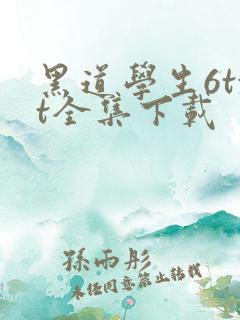 黑道學生6tx
t全集下載
孫雨彤
未經同意禁止轉載